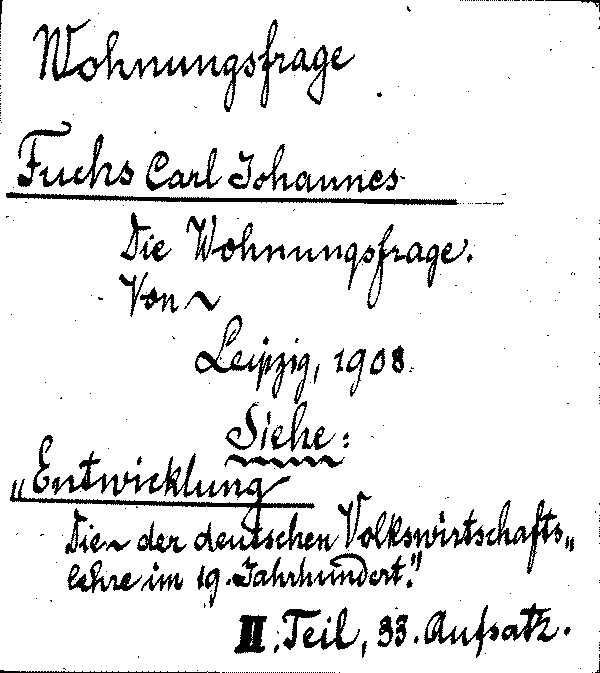 Wohnungsfrage
Fuchs Carl Johannes
Die Wohnungsfrage.
Von ~
Leipzig, 1908.
Siehe:
„Entwicklung
Die ~ der deutschen Volkswirtschafts„
lehre im 19. Jahrhundert."
II. Teil, 33. Aufsatz.